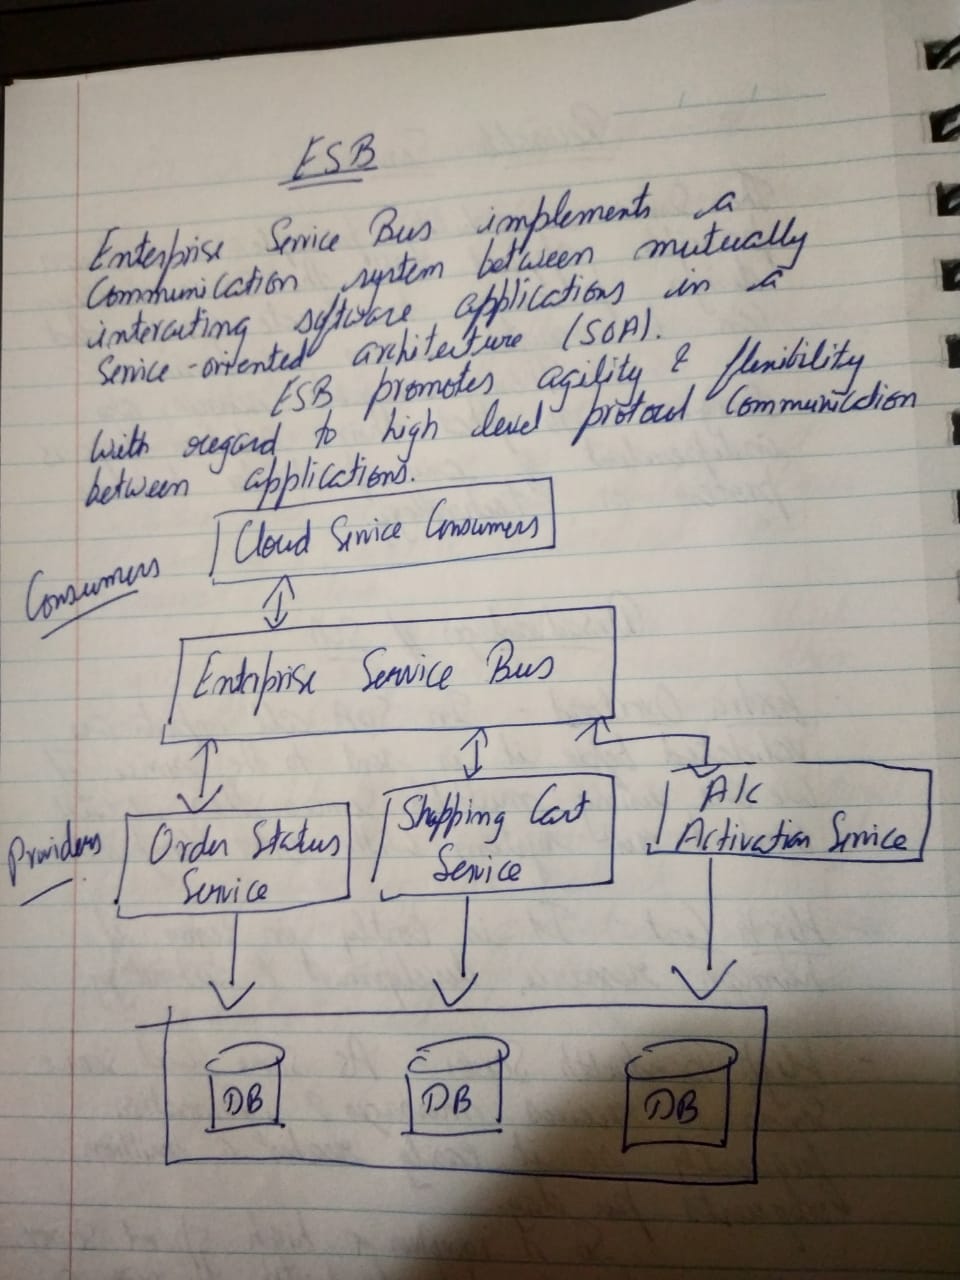 ESB
Enterprise Service Bus implements a
Communication system between mutually
interacting software applications in a
Service-oriented architecture (SOA).
ESB promotes agility & flexibility
with regard to high level protocol Communication
between applications.
Cloud Service Consumers
Consumers
Enterprise Service Bus
Providers
Order Status
Service
Shopping Cart
Service
A/c
Activation Service
DB
DB
DB